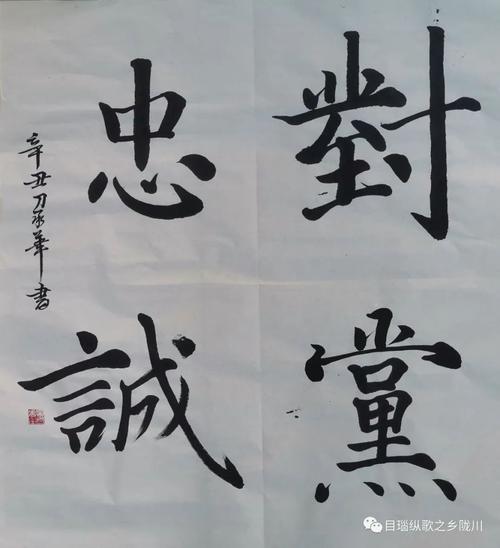 對黨
忠誠
辛丑刀承華書
目瑙纵歌之乡陇川